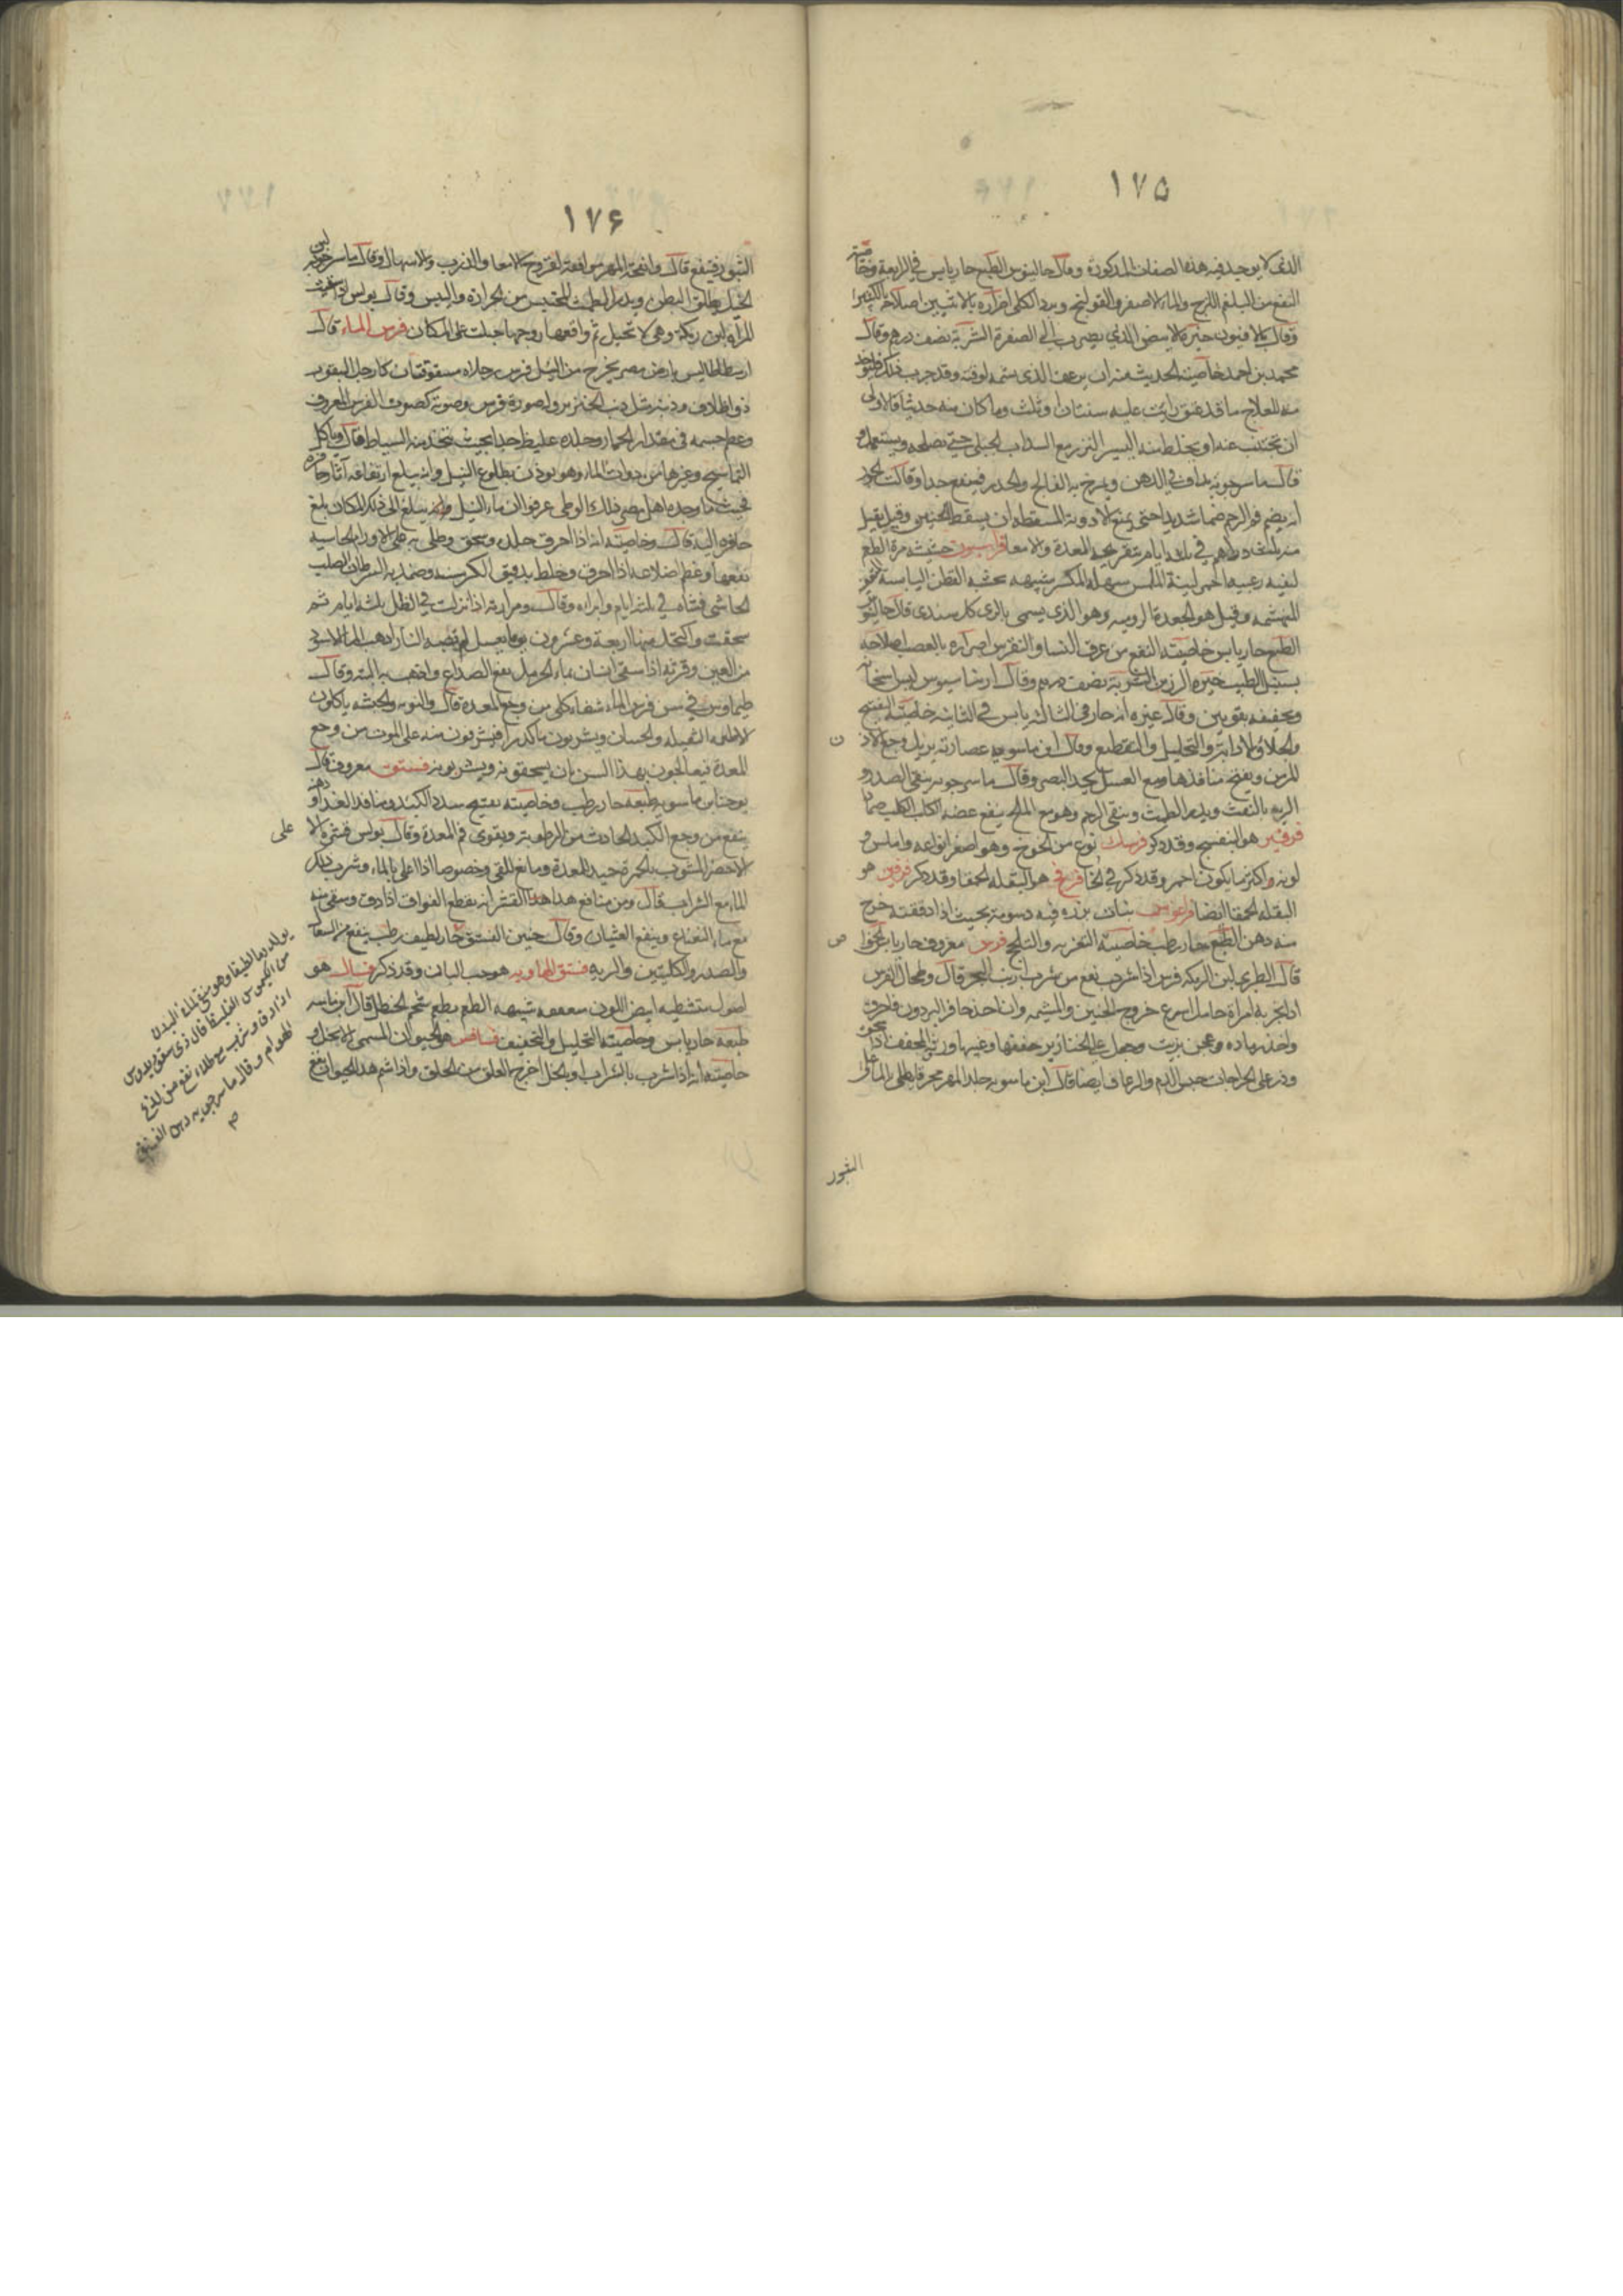 ١٧٥
الذى لا يوجد فيه هذه الصفات المذكورة وقال جالينوس الطبع حار يابس في الرابعة وخاصيته
النفع من البلغم اللزج والماء الاصفر والقولنج وبرد الكلى اضراره بالانثيين اصلاحه بالكثيرا
وقال بلافنيون خيره الابيض الذي يضرب الى الصفرة الشربة نصف درهم وقال
محمد بن احمد خاصية الحديث منه ان يرعف الذى يشمه لوقته وقد جرب ذلك
منه للعلاج ما قد عتق واتت عليه سنتان او ثلث وما كان منه حديثا فالاولى
ان يجتنب عنه او يخلط منه اليسير النزر مع السداب الجبلى حتى يصلحه ويستعمل
قال ماسرجويه يداف في الدهن ويمرخ به الفالج والخدر فينفع جدا وقالت الخوز
انه يضم فم الرحم ضما شديدا حتى يمنع الادوية المسقطة ان يسقط الجنين وقيل يقتل
منه ثلثة دراهم في ثلثة ايام بتقريحه المعدة والامعا فراسيون حشيشة مرة الطعم
ليفيه زغبية الحمى لينة الملمس سهلة المكسر شبيهه بحشيشة القطن اليابسة
المهشمه وقيل هو الجعدة الرومية وهو الذى يسمى بالرى كل سندى قال جالينوس
الطبع حار يابس خاصيته النفع من عرق النسا والنقرس اضراره بالعصب اصلاحه
بسنبل الطيب خيره الرزين الشربة نصف درهم وقال ارشاسيوس ليس اسخانه
وتجفيفه بقويين وقال غيره انه حار في الثالثة يابس في الثانية خاصيته التفتيح
والجلاء والاذابة والتحليل والتقطيع وقال ابن ماسويه عصارته يزيل وجع الاذن
المزمن ويفتح منافذها ومع العسل يحد البصر وقال ماسرجويه ينقى الصدر و
الرية بالنفث ويدر الطمث وينقى الرحم وهو مع الملح ينفع عضة الكلب الكلب ضمادا
فرفير هو البنفسج وقد ذكر فرسك نوع من الخوخ وهو اصغر انواعه واملس
لونه واكثر ما يكون احمر وقد ذكر في الخا فرفخ هو البقلة الحمقا وقد ذكر فرفين هو
البقلة الحمقا ايضا نبات بزره فيه دسومة بحيث اذا دققته خرج
منه دهن الطبع حار رطب خاصيته التغرية والتلجج فرس معروف حار يابس
قال الطبري لبن الرمكة فرس اذا شرب نفع من شرب ارنب البحر قال وطحال الفرس
اذا بخر به امراة حامل اسرع خروج الجنين والمشيمة وان اخذ حافر البرذون فاحرق
واخذ رماده وعجن بزيت وجعل على الخنازير جففها وغيرها وزبله المجفف اذا سحق
وذر على الجراحات حبس الدم والرعاف ايضا قال ابن ماسويه جلد المهر محرقا يطلى بالماء على
ن
ص
البثور
١٧٦
البثور فينفع قال وانفحة المهر موافقة لقروح الامعا والذرب والاسهال وقال ماسرجويه لبن
الخيل يطلق البطن ويدر الطمث المحتبس من الحرارة واليبس وقال بولس
المراة لبن رمكة وهى لا تحبل ثم واقعها زوجها حبلت على المكان فرس الماء قال
ارسطاطاليس بارض مصر يخرج من النيل فرس رجلاه مشقوقتان كارجل البقر
ذو اظلاف وذنبه مثل ذنب الخنزير وله صورة فرس وصوته كصوت الفرس المعروف
وعظم جسمه في مقدار الحمار وجلده غليظ جدا بحيث يتخذ منه السياط قال وياكل
التماسيح وغيرها من دواب الماء وهو يوذن بطلوع النيل وانه يبلغ ارتفاعه آثار حافره
فحيث ما وجد اهل مصر ذلك الوطى عرفوا ان ماء النيل وانه سيبلغ الى ذلك المكان بلغ
حافره اليه قال وخاصيته انه اذا احرق جلده وسحق وطلى به على الاورام الجاسية
نفعها وعظم اضلاعه اذا احرق وخلط بدقيق الكرسنه وضمد به السرطان الصلب
الجاسي فشاه في ثلثة ايام وابراه وقال ومرارته اذا تركت في الظل ثلثة ايام ثم
سحقت واكتحل منها اربعة وعشرون يوما بعسل لم تصبه النار اذهب الماء الاسود
من العين وقرنه اذا سقى انسان بماء الحرمل نفع الصداع واذهب به البتة وقال
طيماوس في سن فرس الماء شفاء كلى من وجع المعدة قال والنوبه والحبشة ياكلون
الاطعمة الثقيلة والحسان ويشربون ماء كدرا فيشرفون منه على الموت من وجع
المعدة فيعالجون بهذا السن بان يسحقونه ويشربونه فستق معروف قال
يوحنا بن ماسويه طبعه حار رطب وخاصيته يفتح سدد الكبد ومنافذ الغذاء و
ينفع من وجع الكبد الحادث من الرطوبة ويقوى فم المعدة وقال بولس قشره
الاحضر المشوب بالحمرة جيد للمعدة ومانع للقى وخصوصا اذا اغلى بالماء وشرب ذلك
الماء مع الشراب قال ومن منافع هذا القشر انه يقطع الفواق اذا دق وسقى منه
مع ماء النعناع وينفع الغثيان وقال حنين الفستق حار لطيف رطب ينفع من السعال
والصدر والكليتين والرية فستق الهاوية هو حب البان وقد ذكر فسال هو
اصول متشظية ابيض اللون معقفة شبيهه الطعم بطعم شحم الحنظل قال ابن ماسه
طبعه حار يابس وخاصيته التحليل والتجفيف فسافس هو الحيوان المسمى الانجل و
خاصيته انه اذا شرب بالشراب او بالخل اخرج العلق من الحلق واذا شم هذا الحيوان نفع
على
يولد دما لطيفا وهو سريع لبدن
من الكيموس الغليظ قال ذي سقوريدوس
اذا دق وشرب مع طلاء نفع من لدغ
الهوام وقال ماسرجويه دهن الفستق
م